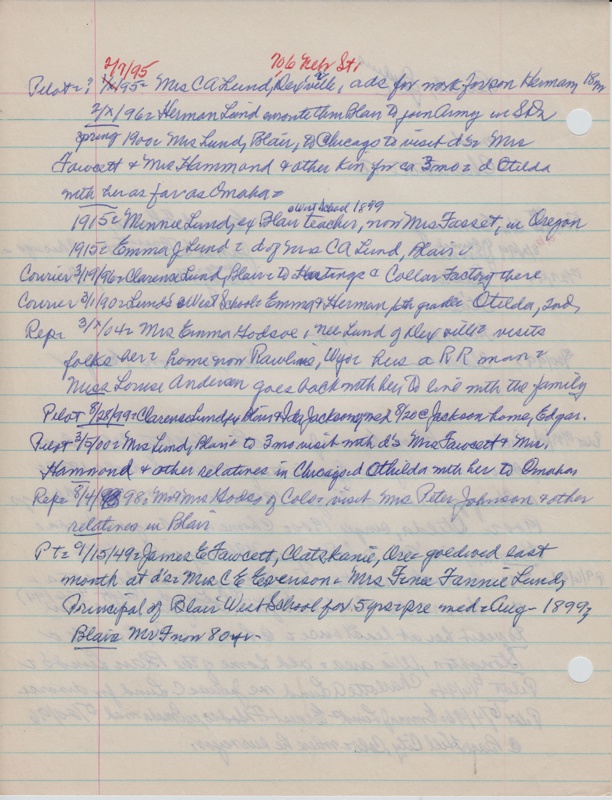 2/7/95 706 Nebr St.
Pilot = ? 1/X/95 = Mrs C A Lund, ads for work for son Herman, 18 yr
2/X/96 = Herman Lund enroute thru Blair to join Army in S D =
Spring 1900 = Mrs Lund, Blair, to Chicago to visit d's = Mrs
Fawcett & Mrs Hammond & other kin for ca 3 mo = d Otilda
with her as far as Omaha =
West School 1899
1915 = Minnie Lund, ex Blair teacher, now Mrs Fasset, in Oregon
1915 = Emma J Lund = d of Mrs C A Lund, Blair =
Courier 3/19/96 = Clarence Lund, Blair = to Hastings = Collar Factory there
Courier 2/1/90 = Lunds @ West School = Emma & Herman, 6th grade; Otilda, 2nd,
Rep = 3/X/04 = Mrs Emma Hodson, nee Lund of visits
folks here = home now Rawlins, Wyo = hus a R R man =
Miss Louise Andersen goes back with her to live with the family
Pilot 8/28/99 = Clarence Lund, ex Blair & Jackson, md 8/20 @ Jackson home, Edgar.
Pilot 3/5/00 = Mrs Lund, Blair = to 3 mo visit with d's Mrs Fawcett & Mrs
Hammond & other relatives in Chicago = d Othilda with her to Omaha =
Rep = 8/4/98 = Mr & Mrs of Colo = visit Mrs Peter Johnson & other
relatives in Blair
P t = 9/15/49 = James E Fawcett, Clatskanie, Ore = last
month at d's = Mrs C E Evenson = Mrs F nee Fannie Lund,
Principal of Blair West School for 5 yrs = pre med = Aug - 1899,
Blair = Mr F now 80 +